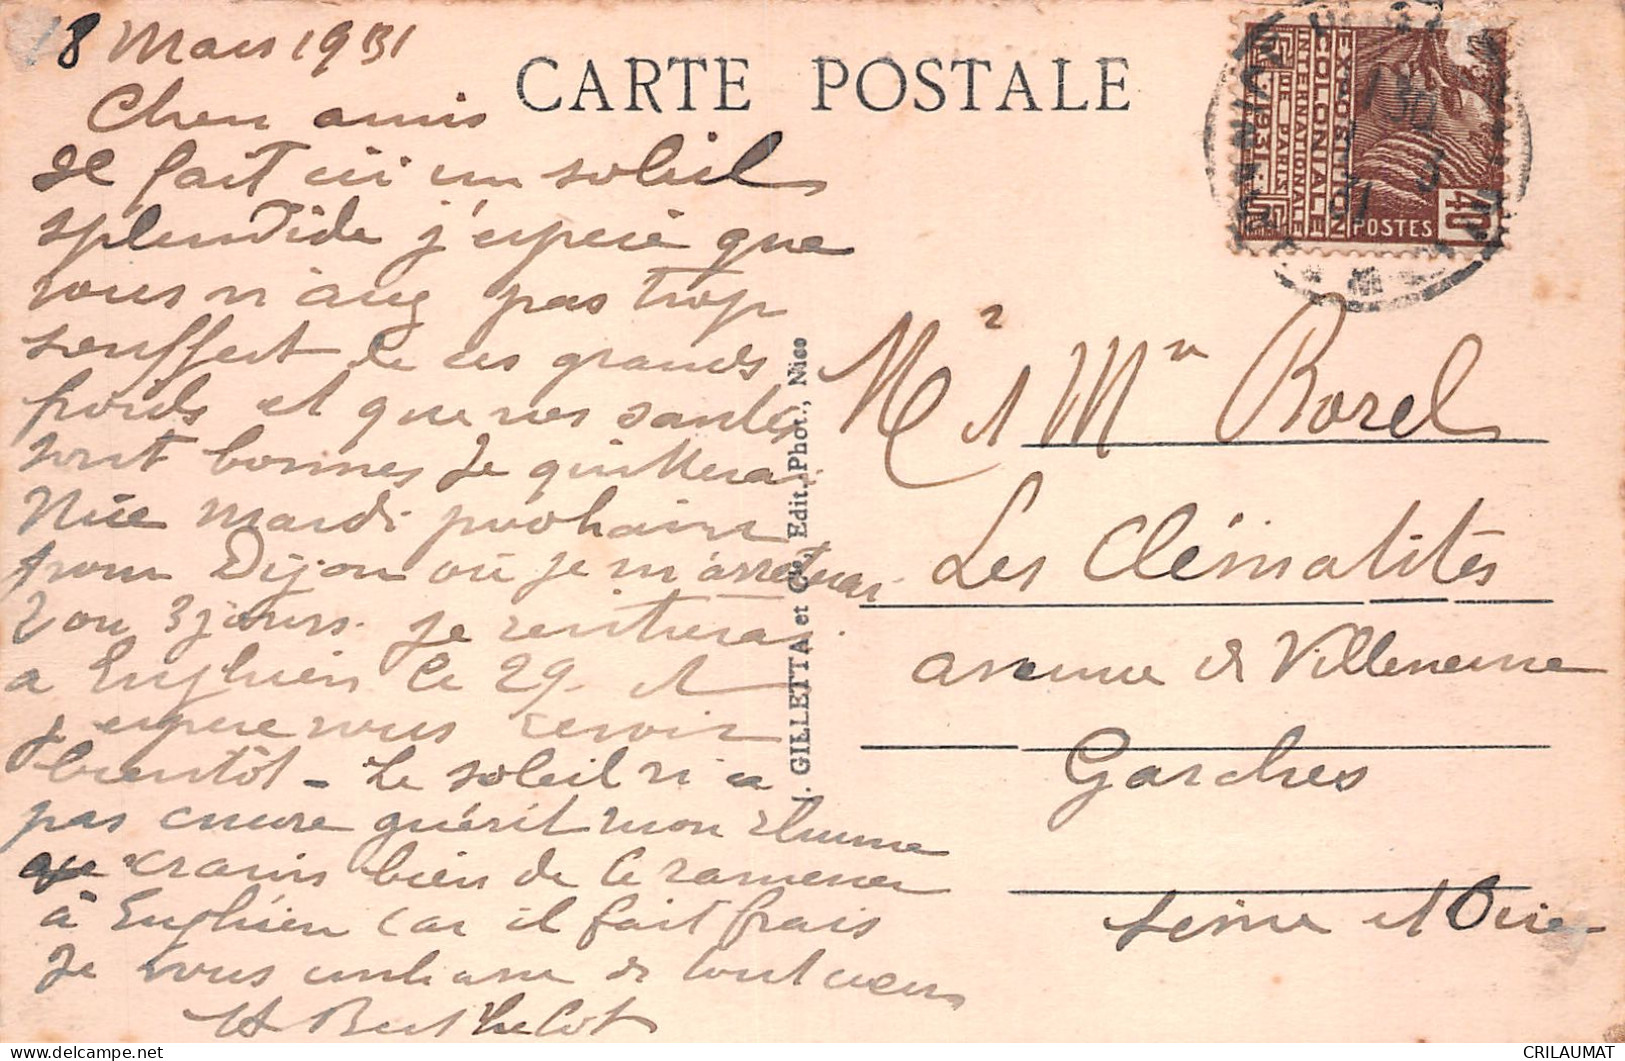 18 Mars 1931
CARTE POSTALE
Chers amis
Il fait ici un soleil
splendide j'espère que
vous n'avez pas trop
souffert de ces grands
froids et que vos santés
sont bonnes Je quitterai
Nice mardi prochain
pour Dijon où je m'arreterai
2 ou 3 jours. Je rentrerai
a Enghien le 29. et
j'espere vous revoir
bientôt - Le soleil n'a
pas encore guérit mon rhume
je crains bien de le ramener
à Enghien car il fait frais
Je vous embrasse de tout coeur
H Berthelot
J. GILLETTA et Cie, Edit. Phot., Nice
EXPOSITION
COLONIALE
INTERNATIONALE
DE PARIS
1931
POSTES
40c
Mr et Mme Borel
Les Clématites
avenue de Villeneuve
Garches
Seine et Oise
CRILAUMAT